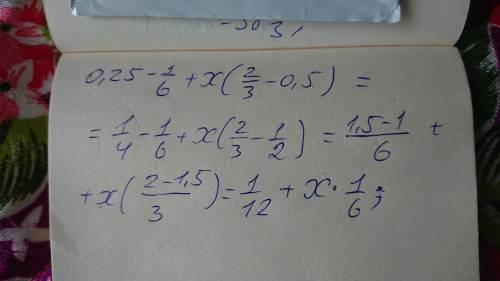 -30 3,
0,25 - 1/6 + x(2/3 - 0,5) =
= 1/4 - 1/6 + x(2/3 - 1/2) = (1,5-1)/6 +
+ x((2-1,5)/3) = 1/12 + x · 1/6;